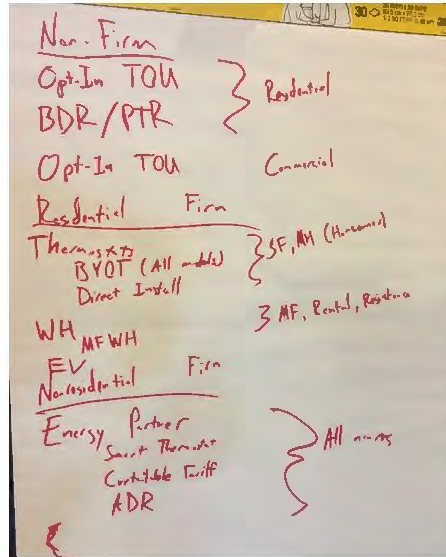 Non-Firm
Opt-In TOU
BDR/PTR
Residential
Opt-In TOU
Commercial
Residential Firm
Thermostats
BYOT (All models)
Direct Install
SF, MH (Homeowner)
WH
MFWH
MF, Rental, Resistance
EV
Nonresidential Firm
Energy Partner
Smart Thermostat
Curtailable Tariff
ADR
All
30